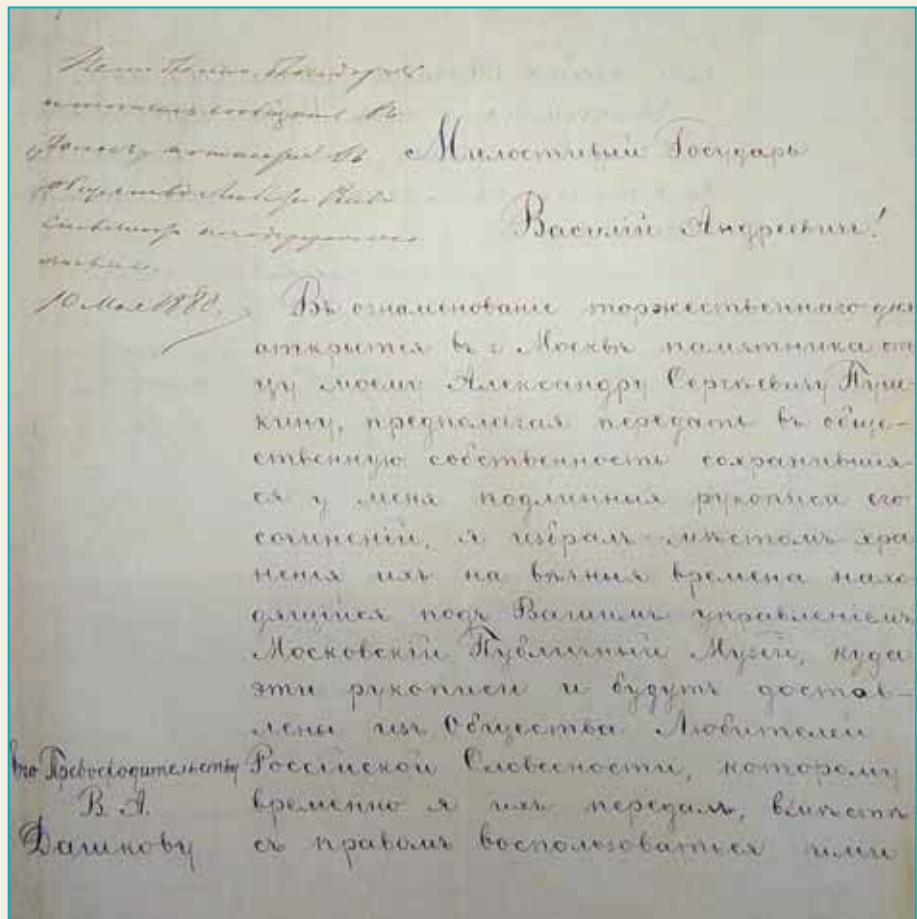 10 Мая 1880.
Милостивый Государь
Василій Андреевичъ!
Въ ознаменованіе торжественнаго дня
открытія въ г. Москвѣ памятника от-
цу моему Александру Сергѣевичу Пуш-
кину, предполагая передать въ обще-
ственную собственность сохранившія-
ся у меня подлинныя рукописи его
сочиненій, я избралъ мѣстомъ хра
ненія ихъ на вѣчныя времена нахо
дящійся подъ Вашимъ управленіемъ
Московскій Публичный Музей, куда
эти рукописи и будутъ достав-
лены изъ Общества Любителей
Россійской Словесности, которому
временно я ихъ передалъ, вмѣстѣ
съ правомъ воспользоваться ими
Его Превосходительству
В. А.
Дашкову